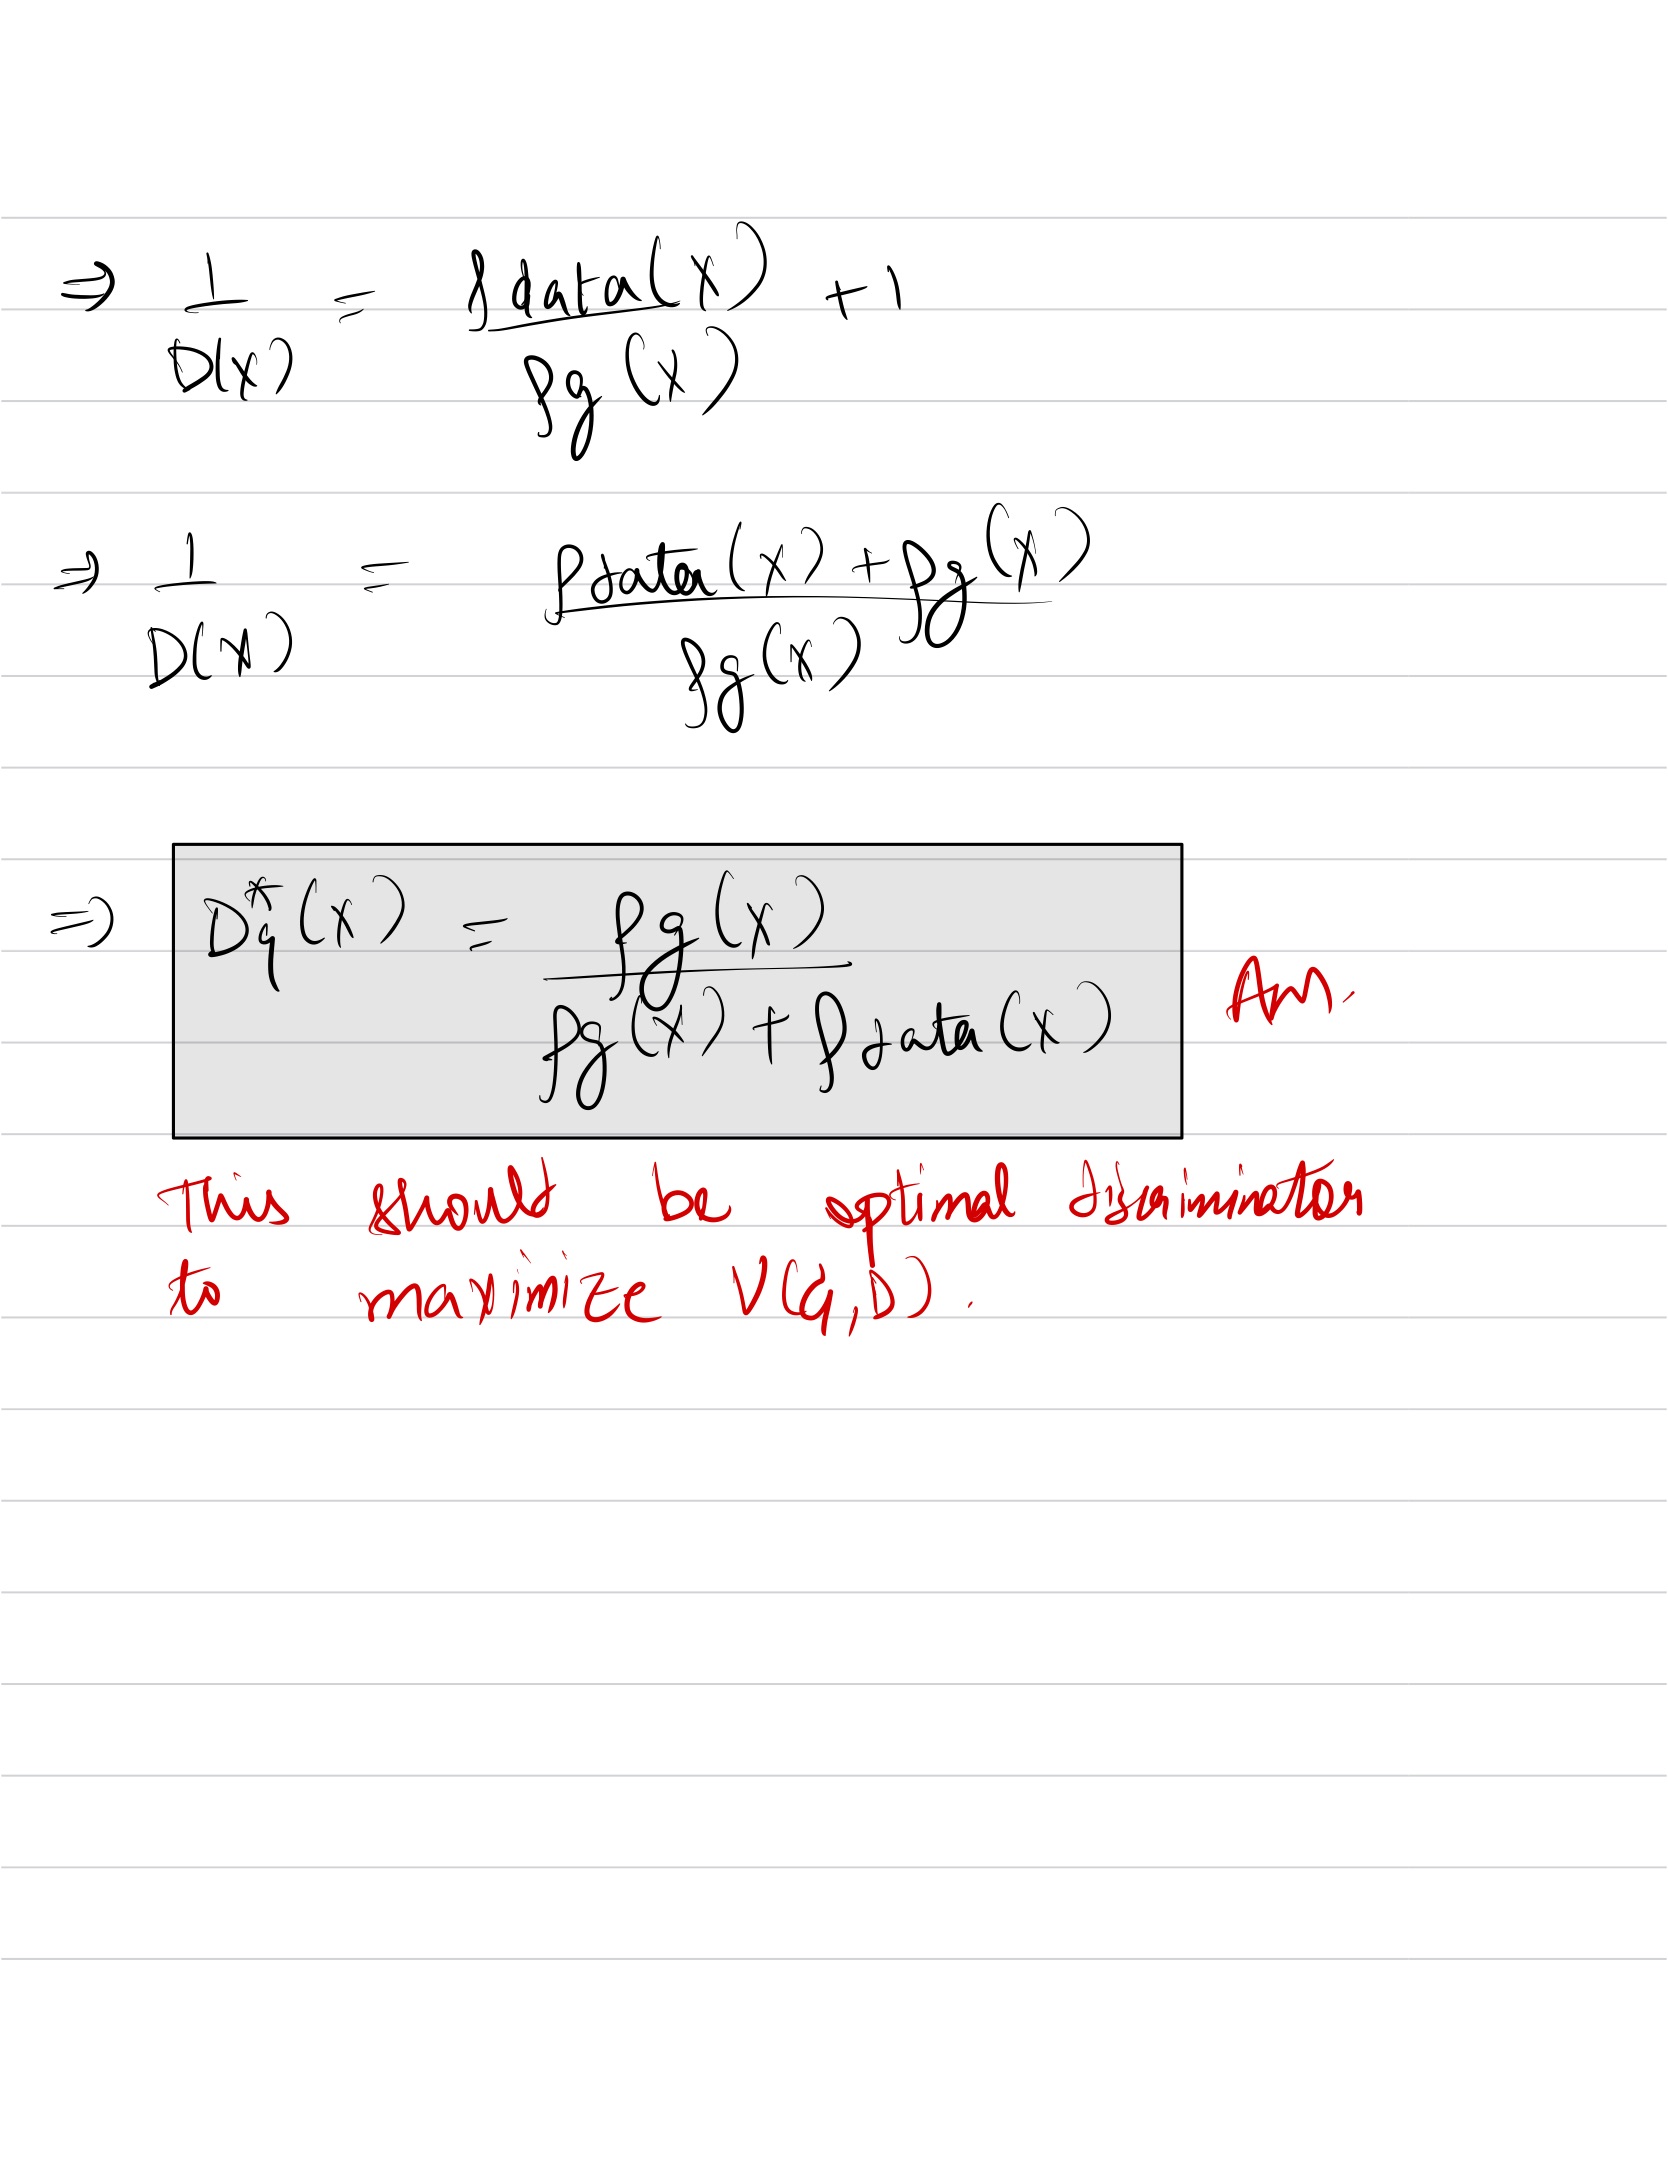 ⇒ 1/D(x) = Pdata(x)/Pg(x) + 1
⇒ 1/D(x) = (Pdata(x) + Pg(x))/Pg(x)
⇒ D*G(x) = Pg(x)/(Pg(x) + Pdata(x)) Ans.
This should be optimal discriminator
to maximize V(G,D).